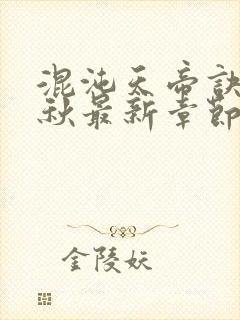 混沌天帝诀
秋最新章节
金陵妖